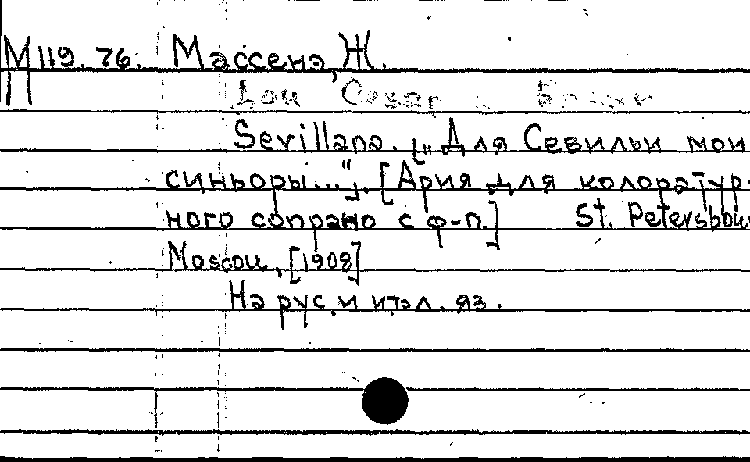 М 119.76. Массенэ, Ж.
Sevillana. [„Для Севильи мои
синьоры..."]. [Ария для колоратур-
ного сопрано с ф-п.] St. Petersbou
Moscou, [1908]
На рус. и итал. яз.